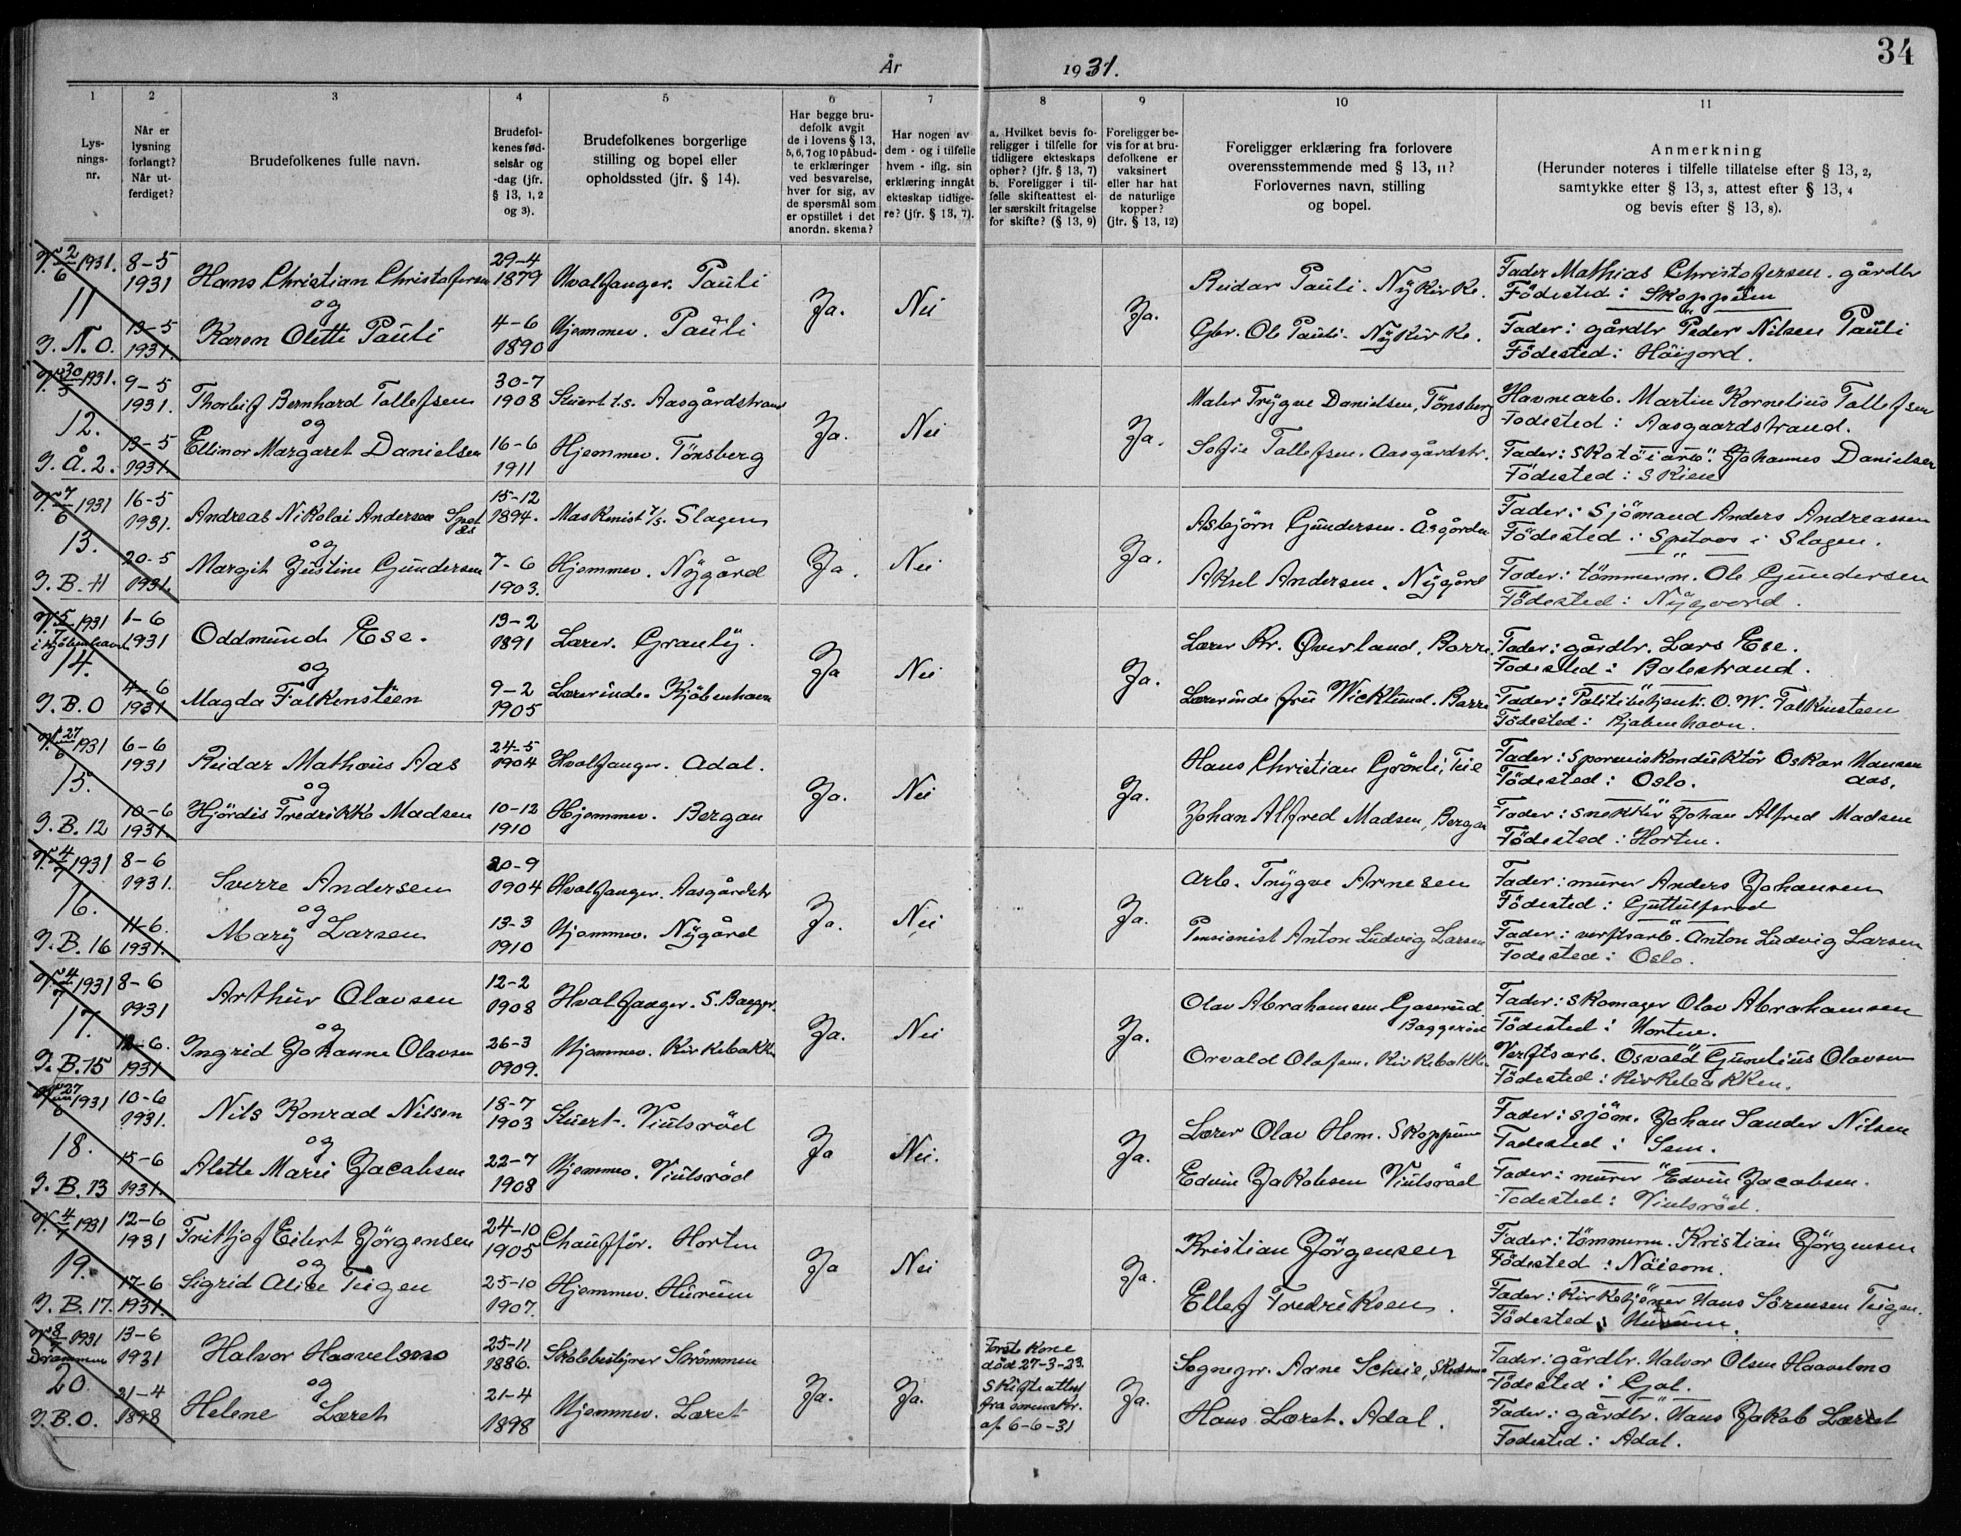 34
År 1931.
1 2 3 4 5 6 7 8 9 10 11
Lys-
nings-
nr.
Når er
lysning
forlangt?
Når ut-
ferdiget?
Brudefolkenes fulle navn.
Brudefol-
kenes fød-
selsår og
-dag (jfr.
§ 13, 1, 2
og 3).
Brudefolkenes borgerlige
stilling og bopel eller
opholdssted (jfr. § 14).
Har begge bru-
defolk avgit
de i lovens § 13,
5, 6, 7 og 10 påbud-
te erklæringer
ved besvarelse,
hver for sig, av
de spørsmål som
er opstillet i det
anordn. skema?
Har nogen av
dem - og i tilfelle
hvem - iflg. sin
erklæring inngåt
ekteskap tidlige-
re? (jfr. § 13, 7).
a. Hvilket bevis fo-
religger i tilfelle for
tidligere ekteskaps
ophør? (jfr. § 13, 7)
b. Foreligger i til-
felle skifteattest el-
ler særskilt fritagelse
for skifte? (§ 13, 9)
Foreligger be-
vis for at bru-
defolkene er
vaksinert
eller har hat
de naturlige
kopper?
(jfr. § 13, 12)
Foreligger erklæring fra forlovere
overensstemmende med § 13, 11?
Forlovernes navn, stilling
og bopel.
Anmerkning
(Herunder noteres i tilfelle tillatelse efter § 13, 2,
samtykke efter § 13, 3, attest efter § 13, 4
og bevis efter § 13, 8).
V. 2/6 1931.
11
I. N. O.
8-5
1931
13-5
1931.
Hans Christian Christofersen
og
Karen Olette Pauli
29-4
1879
4-6
1890
Hvalfanger. Pauli
Hjemmev. Pauli
Ja.
Nei
Ja.
Reidar Pauli. Nykirke.
Gbr. Ole Pauli. Nykirke.
Fader Mathias Christofersen. gårdbr
Födested: Skoppum
Fader: gårdbr Peder Nilsen Pauli
Födested: Höijord.
V. 30/5 1931.
12.
I. Å. 2.
9-5
1931.
13-5
1931.
Thorleif Bernhard Tollefsen
og
Ellinor Margaret Danielsen
30-7
1908
16-6
1911
Stuert t.s. Aasgårdstrand
Hjemmev. Tönsberg
Ja.
Nei
Ja.
Maler Trygve Danielsen, Tönsberg
Sofie Tollefsen. Aasgårdstr.
Havnearb. Martin Kornelius Tollefsen
Födested: Aasgaardstrand.
Fader: Skotöiarb. Johannes Danielsen
Födested: Skien
V. 7/6 1931
13.
I. B. 11
16-5
1931.
20-5
1931.
Andreas Nikolai Andersen
og
Margit Justine Gundersen
15-12
1894.
7-6
1903.
Maskinist Slagen
Hjemmev. Nygård
Ja.
Nei
Ja.
Asbjörn Gundersen. Åsgården
Aksel Andersen. Nygård
Fader: Sjömand Anders Andreassen
Födested: i Slagen.
Fader: tömmerm. Ole Gundersen
Födested: Nygaard.
1931
i Kjöbenhavn
14.
I. B. O
1-6
1931
4-6
1931
Oddmund Ese.
og
Magda Falkensteen
13-2
1891
9-2
1905
Lærer. Granly.
Lærerinde. Kjöbenhavn
Ja
Nei
Ja.
Lærer Kr. Øverland, Borre.
Lærerinde fru Wicklund. Borre
Fader: gårdbr. Lars Ese.
Födested: Balestrand.
Fader: Politibetjent. O. W. Falkensteen
Födested: Kjöbenhavn.
V. 27/6 1931
15.
I. B. 12
6-6
1931
10-6
1931.
Reidar Mathæus Aas
og
Hjördis Fredrikke Madsen
24-5
1904
10-12
1910
Hvalfanger. Adal.
Hjemmev. Bergan
Ja.
Nei
Ja.
Hans Christian Grönli, Teie
Johan Alfred Madsen, Bergan
Fader: Sporveiskonduktör Oskar Hansen
Aas.
Födested: Oslo.
Fader: snekker Johan Alfred Madsen
Födested: Horten.
V. 4/7 1931
16.
I. B. 16
8-6
1931.
11-6.
1931.
Sverre Andersen
og
Mary Larsen
20-9
1904
13-3
1910
Hvalfanger. Aasgårdstr
Hjemmev. Nygård
Ja.
Nei
Ja.
Arb. Trygve Arnesen
Pensionist Anton Ludvig Larsen
Fader: murer Anders Johansen
Födested:
Fader: verftsarb. Anton Ludvig Larsen
Födested: Oslo.
V. 4/7 1931
17.
I. B. 15
8-6
1931
12-6.
1931
Arthur Olavsen
og
Ingrid Johanne Olavsen
12-2
1908
26-3
1909.
Hvalfanger. S. Bagger.
Hjemmev. Kirkebakken
Ja.
Nei
Ja.
Olav Abrahamsen
Orvald Olafsen. Kirkebakken
Fader: Skomager Olav Abrahamsen
Födested: Horten.
Verftsarb. Osvald Gunelius Olavsen
Födested: Kirkebakken.
V. 27/6 1931
18.
I. B. 13
10-6
1931.
15-6
1931.
Nils Konrad Nilsen
og
Alette Marie Jacobsen
18-7
1903
22-7
1908
Stuert. Viulsröd
Hjemmev. Viulsröd
Ja
Nei.
Ja.
Lærer Olav Hem. Skoppum
Edvin Jakobsen Viulsröd
Fader: sjöm. Johan Sander Nilsen
Födested: Sem.
Fader: murer Edvin Jacobsen.
Födested: Viulsröd.
V. 4/7 1931
19.
I. B. 17.
12-6
1931
17-6
1931.
Fritjof Eilert Jörgensen
og
Sigrid Alice Teigen
24-10
1905
25-10
1907.
Chaufför. Horten
Hjemmev. Hurum
Ja
Nei
Ja.
Kristian Jörgensen
Ellef Fredriksen.
Fader: tömmerm. Kristian Jörgensen
Födested:
Fader: Kirketjener Hans Sörensen Teigen.
Födested: Hurum.
1931
Drammen
20
I. B. O.
13-6
1931
21-4
1898
Halvor Haavelmo
og
Helene Læret
25-11
1886.
21-4
1898
Skolebestyrer Strömmen
Hjemmev. Læret
Ja.
Ja.
Förstekone
död 27-3-23.
Skifteattest
fra
af 6-6-31
Ja.
Sognepr. Arne Scheie,
Hans Læret. Adal.
Fader: gårdbr. Halvor Olsen Haavelmo
Födested: Gol.
Fader: gårdbr. Hans Jakob Læret
Födested: Adal.